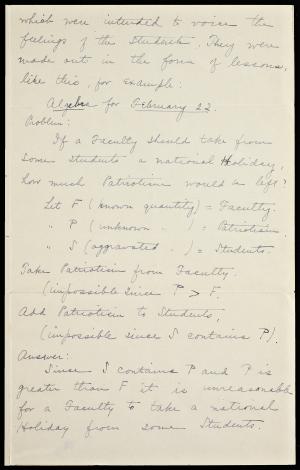 which were intended to voice the
feelings of the Students. They were
made out in the form of lessons,
like this, for example:
Algebra for February 22.
Problem:
If a Faculty should take from
some students a national Holiday,
how much Patriotism would be left?
Let F (known quantity) = Faculty.
" P (unknown " ) = Patriotism.
" S (aggravated " ) = Students.
Take Patriotism from Faculty.
(impossible since P > F.
Add Patriotism to Students,
(impossible since S contains P).
Answer:
Since S contains P and P is
greater than F it is unreasonable
for a Faculty to take a national
Holiday from some Students.